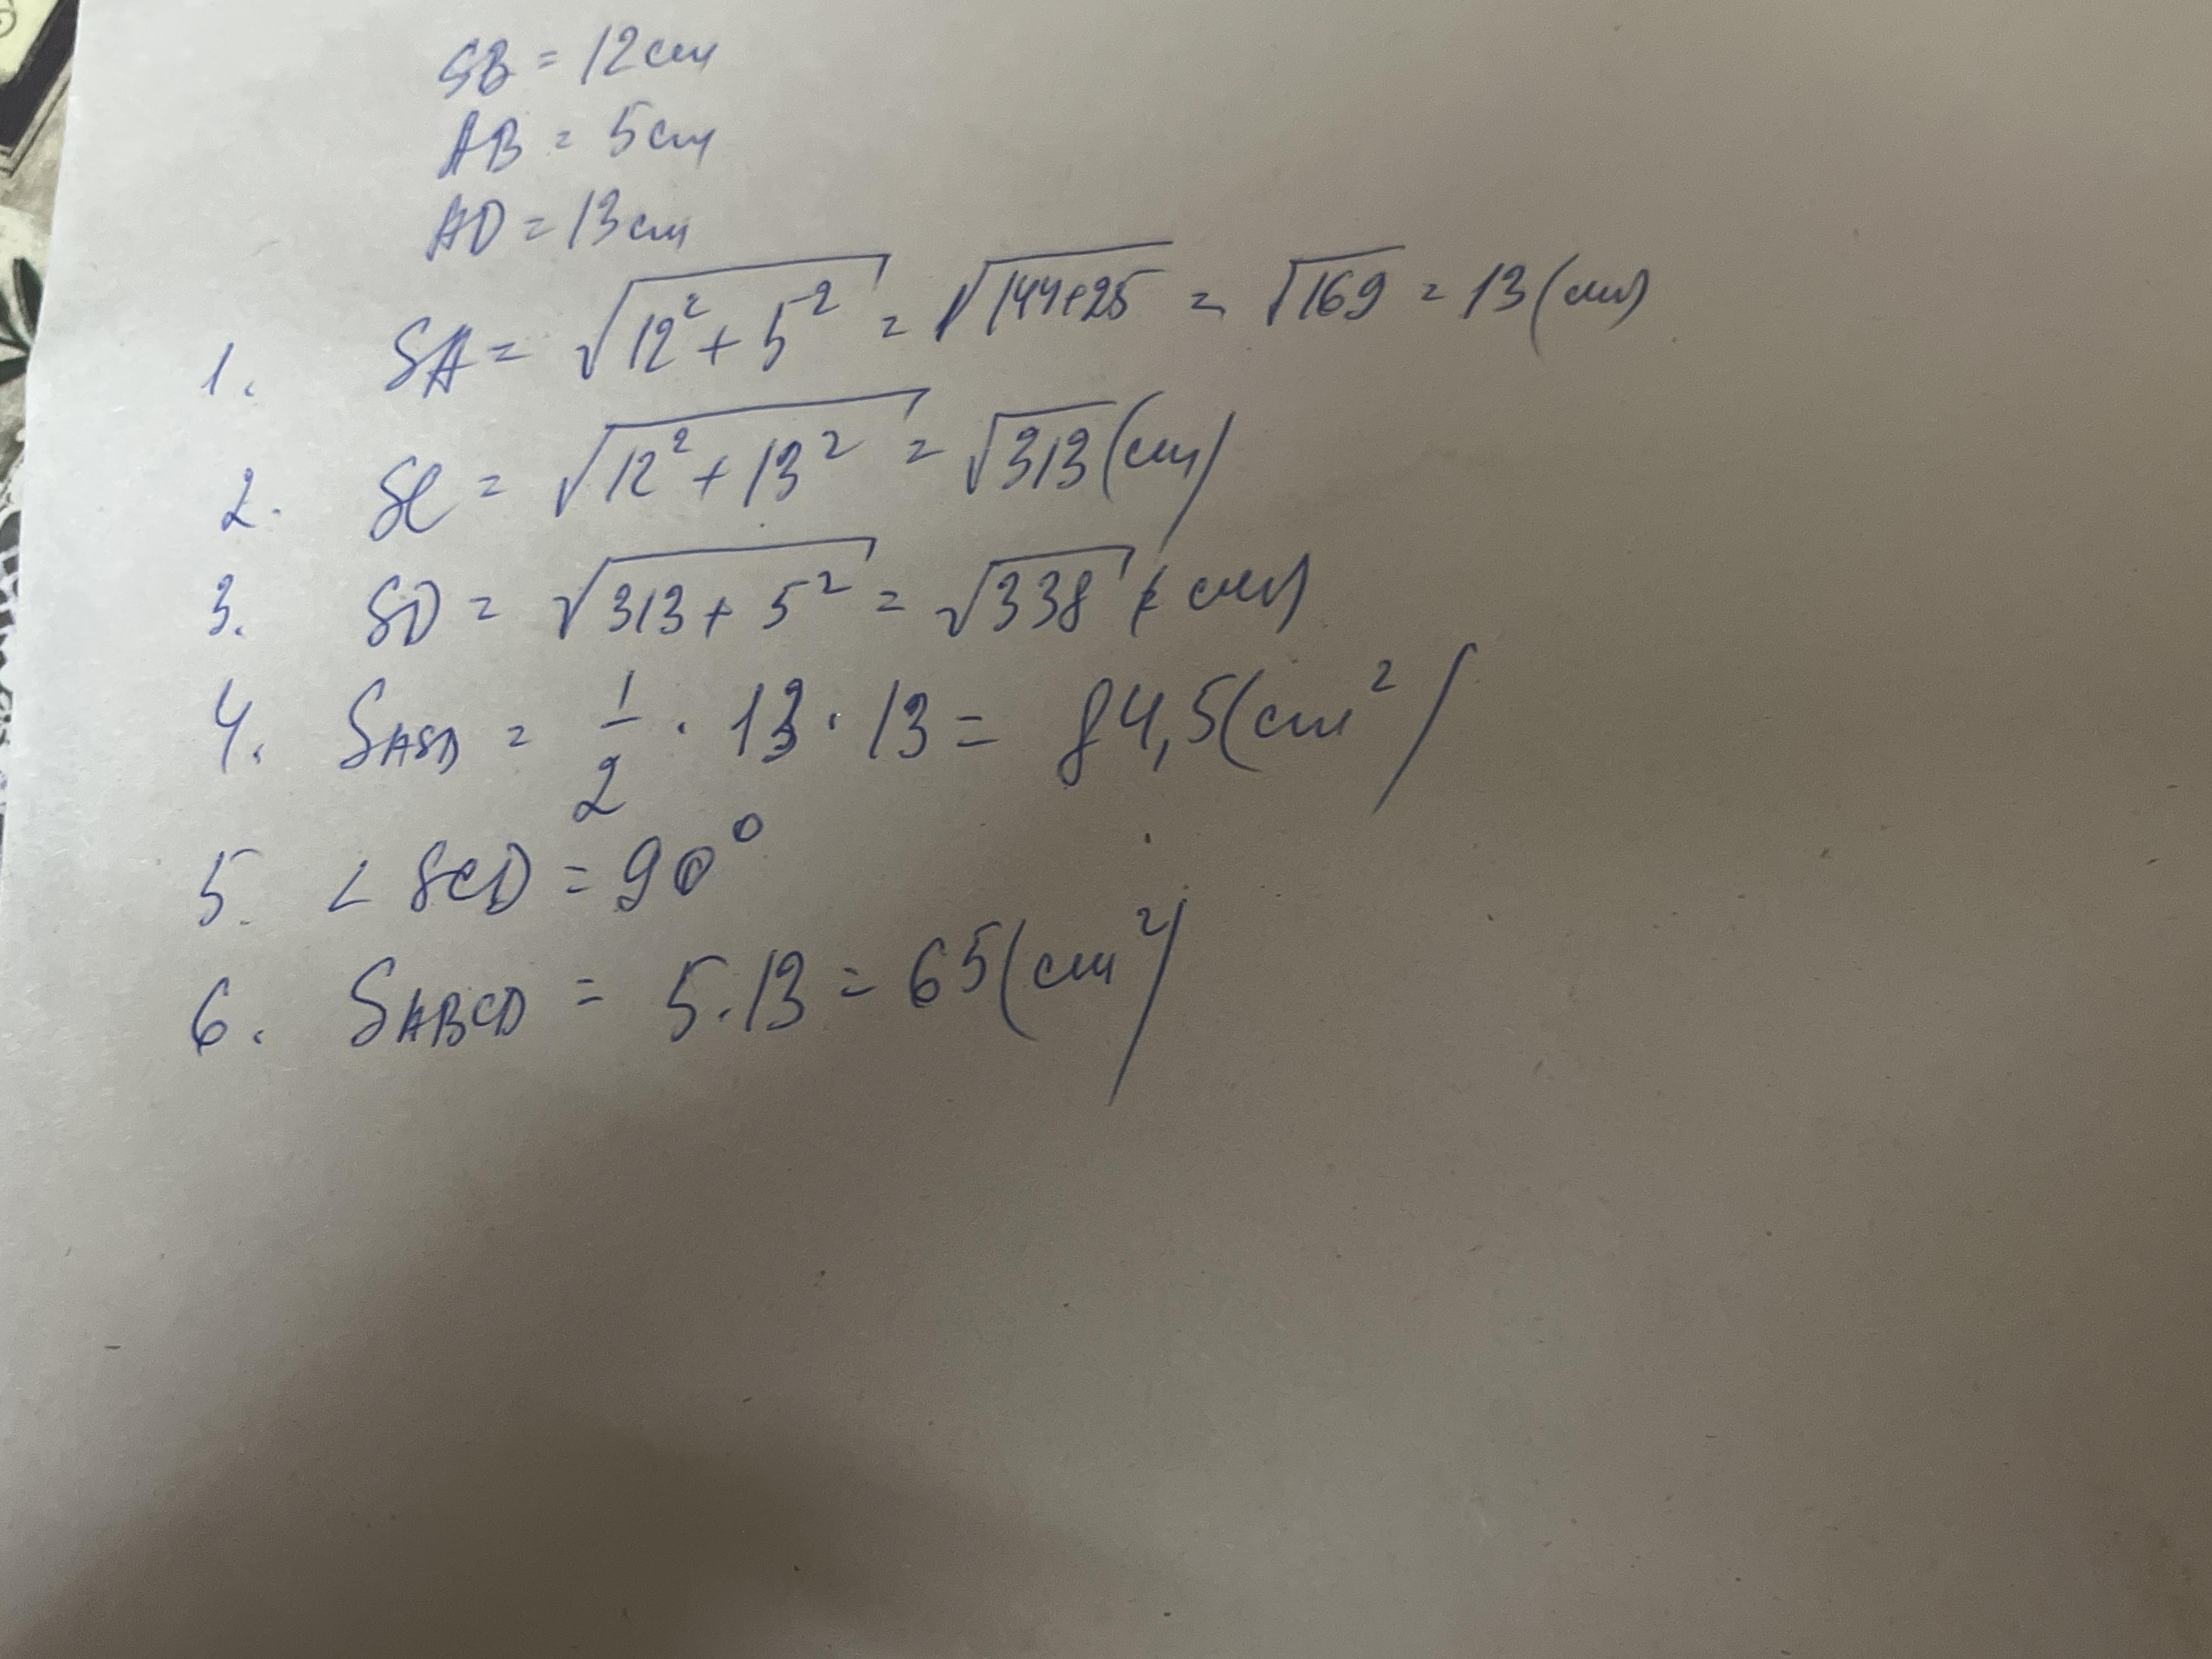 SB = 12cm
AB = 5cm
AD = 13cm
1. SA = √12² + 5² = √144+25 = √169 = 13(cm)
2. SC = √12² + 13² = √313 (cm)
3. SD = √313 + 5² = √338 (cm)
4. S ASD = 1/2 · 13 · 13 = 84,5(cm²)
5. ∠ SCD = 90°
6. S ABCD = 5.13 = 65(cm²)